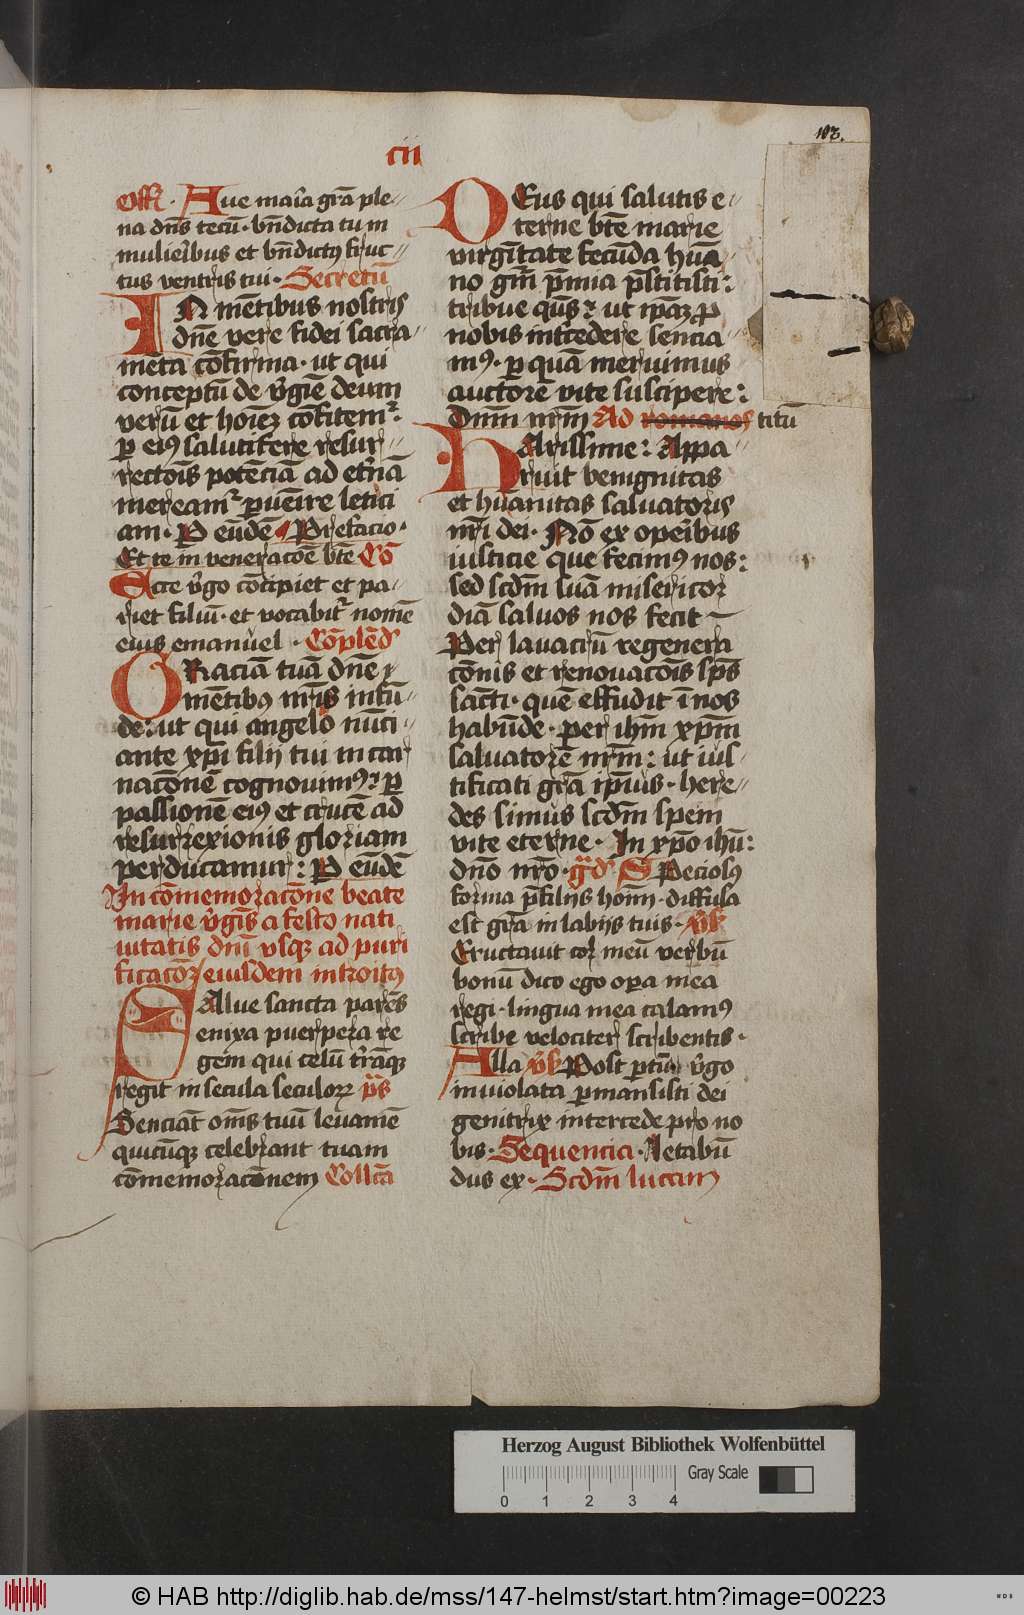 102.
cii
Offi. Aue maria gr̄a ple-
na dn̄s tecū. bn̄dicta tu in
mulieribus et bn̄dictꝰ fruc-
tus ventris tui. Secretū
IN mētibus nostris
dn̄e vere fidei sacra-
mēta cōfirma. ut qui
conceptū de v̄gīe deum
verū et hoīeꝫ cōfitemr̄.
ꝑ eiꝰ salutifere resur-
rectōis potēciā ad et̄nā
meream̄r ꝑuēire letici
am. P eūdē Prefacio.
Et te in veneracōē bt̄e Cō
Ecce v̄go cōcipiet et pa-
riet filiū. et vocabit̄r nomē
eius emanuel. Cōplēd
GRaciā tuā dn̄e
mētibꝰ nr̄is infū-
de: ut qui angelo nūci-
ante xp̄i filij tui incar
nacōnē cognouimꝰ: ꝑ
passionē eiꝰ et crucē ad
resurrexionis gloriam
perducamur: P eūdē
In cōmemoracōne beate
marie v̄gīs a festo nati
uitatis dn̄i vsqꝫ ad puri
ficacōꝫ eiusdem introitꝰ
SAlue sancta parēs
enixa puerpera re
gem qui celū t̄rāqꝫ
regit in secula seculoꝝ p̄s
Senciāt om̄s tuū leuamē
quicūqꝫ celebrant tuam
cōmemoracōnem Collcā
DEus qui salutis e-
terne bt̄e marie
virgītate fecūda huā
no gn̄i p̄mia p̄stitisti:
tribue qūs ut ip̄aꝫ ꝓ
nobis int̄cedere sencia
mꝰ. ꝑ quā meruimus
auctorē vite suscipere:
Dnm̄ nr̄m Ad romanos titū
KArissime: Appa-
ruit benignitas
et hūanitas saluatoris
nr̄i dei. Nō ex operibus
iusticie que fecimꝰ nos:
sed scdm̄ suā misericor
diā saluos nos fecit
Per lauacrū regenera
cōnis et renouacōis sp̄s
sācti. quē effudit ī nos
habūde. per ihm̄ xp̄m
saluatorē nr̄m: ut ius-
tificati gr̄a ip̄ius. here-
des simus scdm̄ spem
vite eterne. In xp̄o ihū:
dn̄o nr̄o. gr̄d Speciosꝰ
forma p̄ filijs hoīm. diffusa
est gr̄a in labijs tuis. v̄s
Eructauit cor meū verbū
bonū dico ego oꝑa mea
regi. lingua mea calamꝰ
scribe velociter scribentis.
Alla v̄s Post ꝑtū v̄go
inuiolata ꝑmansisti dei
genitrix intercede pro no
bis. Sequencia. Letabū
dus ex. Scdm̄ lucam
Herzog August Bibliothek Wolfenbüttel
Gray Scale
0 1 2 3 4
© HAB http://diglib.hab.de/mss/147-helmst/start.htm?image=00223